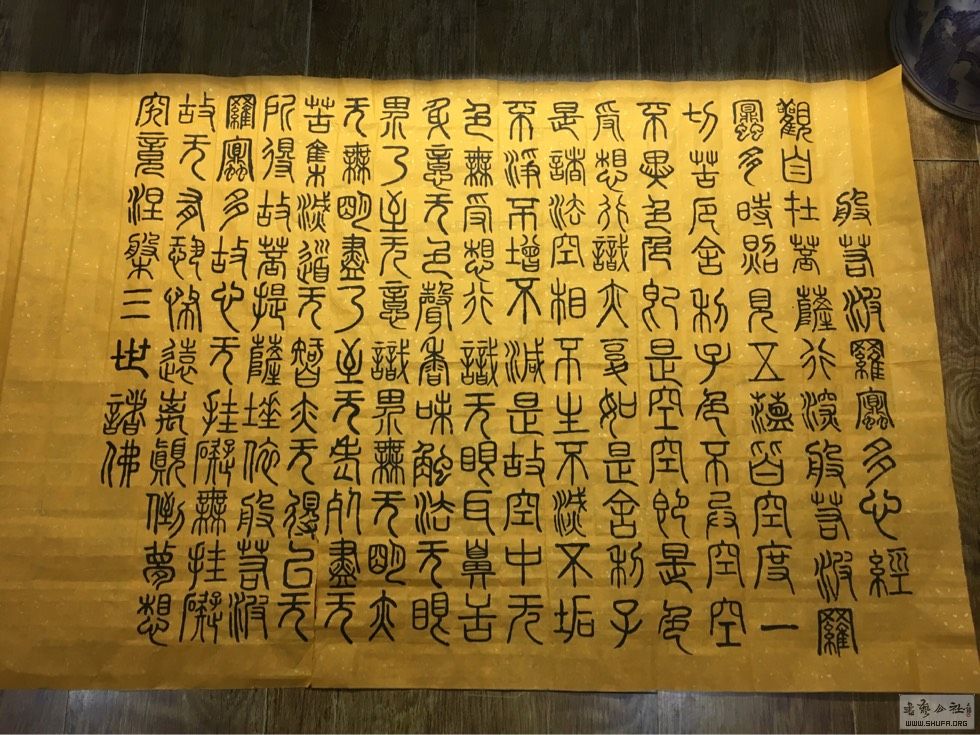 般若波羅蜜多心經
觀自在菩薩行深般若波羅
蜜多時照見五蘊皆空度一
切苦厄舍利子色不異空空
不異色色即是空空即是色
受想行識亦復如是舍利子
是諸法空相不生不滅不垢
不淨不增不減是故空中无
色無受想行識无眼耳鼻舌
身意无色聲香味觸法无眼
界乃至无意識界無无明亦
无無明盡乃至无老死盡无
苦集滅道无智亦无得以无
所得故菩提薩埵依般若波
羅蜜多故心无挂礙無挂礙
故无有恐怖遠離顛倒夢想
究竟涅槃三世諸佛
WWW.SHUFA.ORG